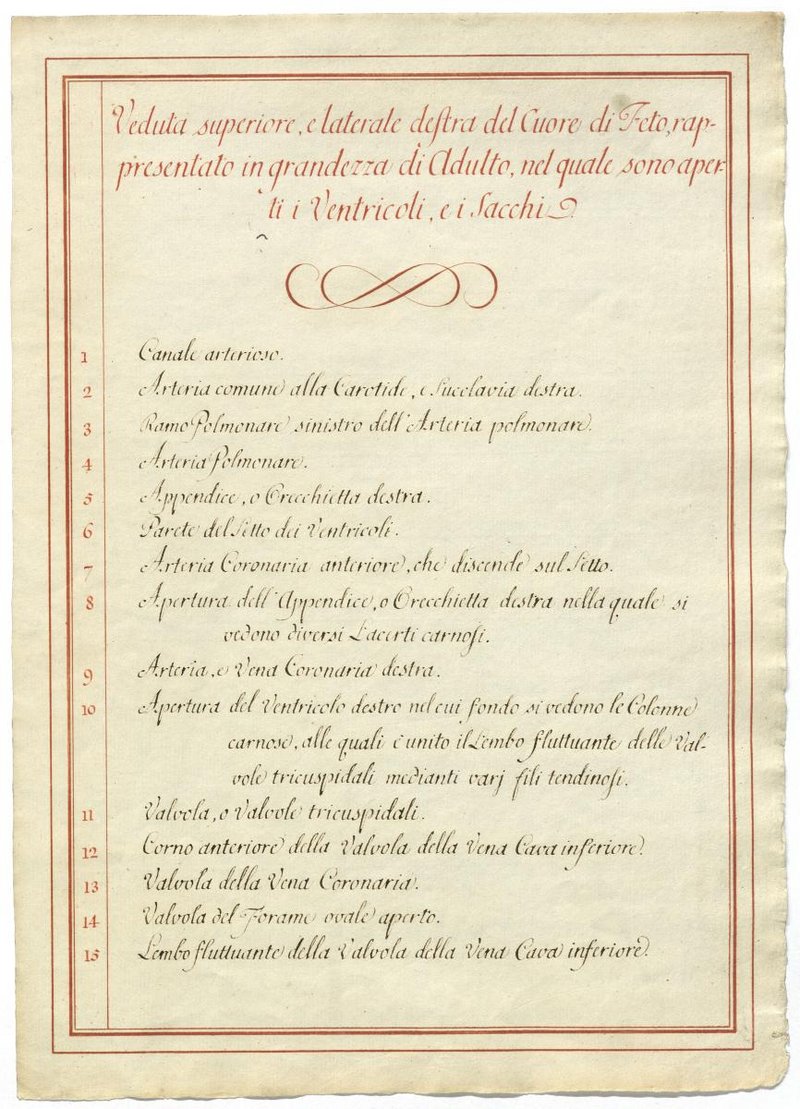 Veduta superiore, e laterale destra del Cuore di Feto, rap-
presentato in grandezza di Adulto, nel quale sono aper-
ti i Ventricoli, e i Sacchi.
1 Canale arterioso.
2 Arteria comune alla Carotide, e Succlavia destra.
3 Ramo Polmonare sinistro dell'Arteria polmonare.
4 Arteria Polmonare.
5 Appendice, o Orecchietta destra.
6 Parete del Setto dei Ventricoli.
7 Arteria Coronaria anteriore, che discende sul Setto.
8 Apertura dell'Appendice, o Orecchietta destra nella quale si
vedono diversi Lacerti carnosi.
9 Arteria, e Vena Coronaria destra.
10 Apertura del Ventricolo destro nel cui fondo si vedono le Colonne
carnose, alle quali è unito il Lembo fluttuante delle Val-
vole tricuspidali medianti varj fili tendinosi.
11 Valvola, o Valvole tricuspidali.
12 Corno anteriore della Valvola della Vena Cava inferiore.
13 Valvola della Vena Coronaria.
14 Valvola del Forame ovale aperto.
15 Lembo fluttuante della Valvola della Vena Cava inferiore.